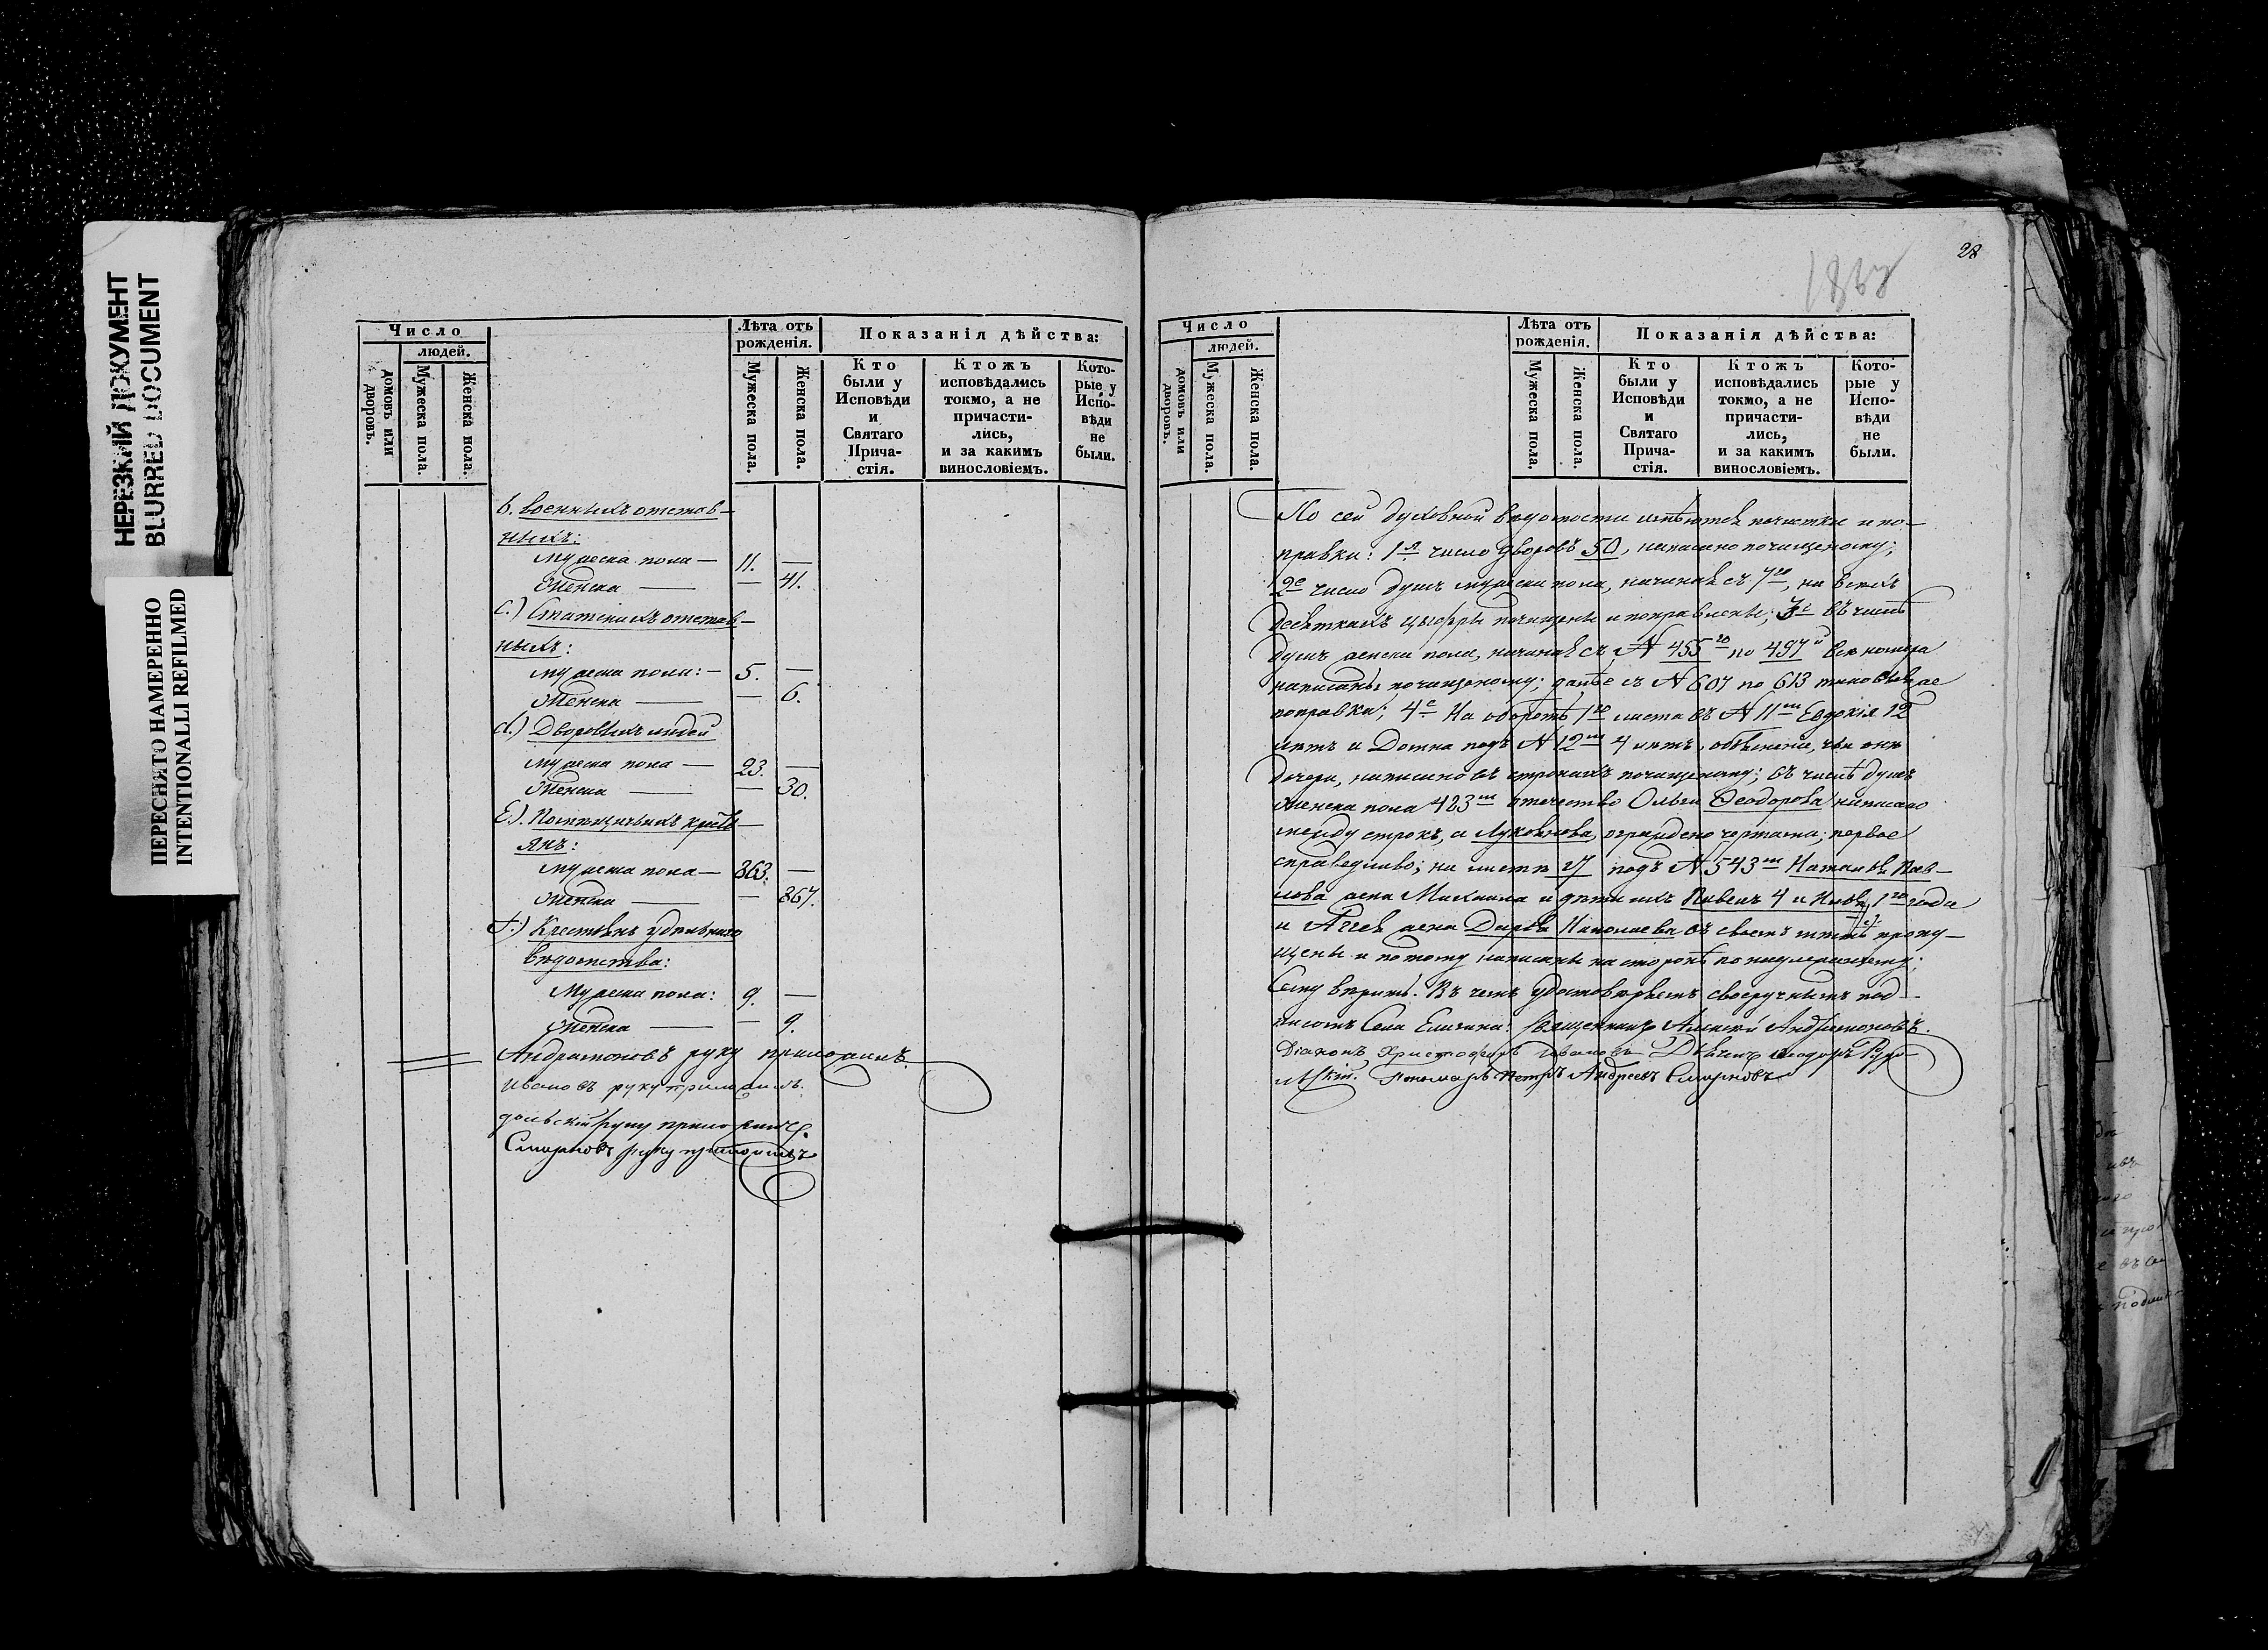 НЕРЕЗКИЙ ДОКУМЕНТ
BLURRED DOCUMENT
ПЕРЕСНЯТО НАМЕРЕННО
INTENTIONALLI REFILMED
Число
людей.
домовъ или дворовъ.
Мужеска пола.
Женска пола.
Лѣта отъ рожденія.
Мужеска пола.
Женска пола.
Показанія дѣйства:
Кто были у Исповѣди и Святаго Прича-стія.
Ктожъ исповѣдались токмо, а не причасти-лись, и за какимъ винословіемъ.
Кото-рые у Испо-вѣди не были.
b. военныхъ отстав-
ныхъ:
Мужеска пола — 11. —
Женска — — 41.
c.) Статскихъ отстав-
ныхъ:
мужеска пола: — 5. —
Женска — — 6.
d.) Дворовыхъ людей
мужеска пола — 23. —
Женска — — 30.
E.) Помѣщичьихъ кресть-
янъ:
Мужеска пола — 863. —
Женска — — 867.
f.) Крестьянъ удѣльнаго
вѣдомства:
Мужеска пола: 9. —
Женска — — 9.
Андратоновъ руку приложилъ.
Ивановъ руку приложилъ.
дольскій руку приложилъ.
Смирновъ руку приложилъ
28
Число
людей.
домовъ или дворовъ.
Мужеска пола.
Женска пола.
Лѣта отъ рожденія.
Мужеска пола.
Женска пола.
Показанія дѣйства:
Кто были у Исповѣди и Святаго Прича-стія.
Ктожъ исповѣдались токмо, а не причасти-лись, и за какимъ винословіемъ.
Кото-рые у Испо-вѣди не были.
По сей духовной вѣдомости имѣются почистки и по-
правки: 1я число дворовъ 50, написано почищеному;
2е число душъ мужеска пола, начиная съ 7го, на всѣхъ
десяткахъ цыфры почищены и поправлены; 3е въ числѣ
душъ женска пола, начиная съ № 455го по 497й все номера
написаны почищеному; далѣе съ № 607 по 613 таковыя же
поправки; 4е На оборотѣ 1го листа въ № 11m Евдокія 12
лѣтъ и Домна подъ № 12m 4 лѣтъ, объясненіе, чьи онѣ
дочери, написано въ строкахъ почищеному; въ числѣ душъ
женска пола 423m отечество Ольги Ѳеодорова написано
между строкъ, а Лукоянова ограждено чертами; первое
справедливо; на листѣ 27 подъ № 543m Наталья Пав-
лова жена Михаила и дѣти ихъ 4 и 1го года
и жена Дарья Николаева въ своемъ мѣстѣ пропу-
щены и потому написаны на сторонѣ по надлежащему;
Сему вѣрить. Въ чемъ удостовѣряемъ своеручнымъ под-
писомъ Села священникъ Алексій Андратоновъ.
Діаконъ Христофоръ Ивановъ Дьячекъ Ѳеодоръ
Пономарь Петръ Андреевъ Смирновъ